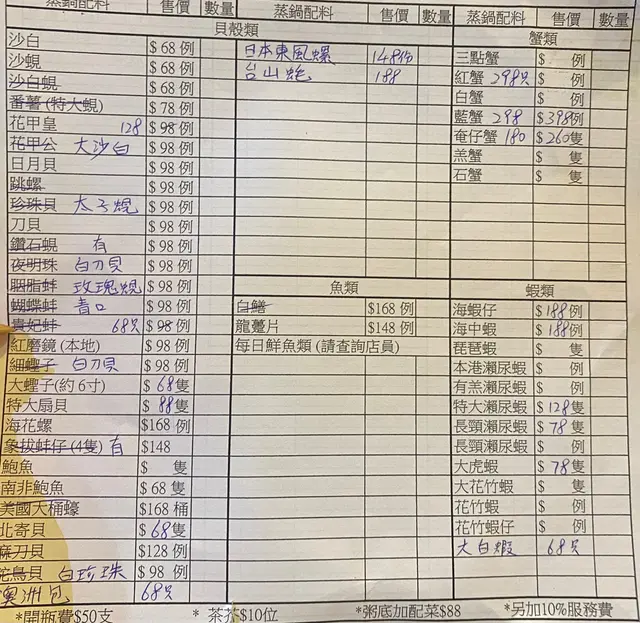 蒸鍋配料 售價 數量
貝殼類
沙白 $ 68 例
沙蜆 $ 68 例
沙白蜆 $ 68 例
番薯(特大蜆) $ 78 例
花甲皇 128 $ 98 例
花甲公 大沙白 $ 98 例
日月貝 $ 98 例
跳螺 $ 98 例
珍珠貝 太子蜆 $ 98 例
刀貝 $ 98 例
鑽石蜆 有 $ 98 例
夜明珠 白刀貝 $ 98 例
胭脂蚌 玫瑰蜆 $ 98 例
蝴蝶蚌 青口 $ 98 例
貴妃蚌 68只 $ 98 例
紅磨鏡(本地) $ 98 例
細蟶子 白刀貝 $ 98 例
大蟶子(約6寸) $ 68隻
特大扇貝 $ 88隻
海花螺 $168 例
象拔蚌仔(4隻) 有 $148
鮑魚 $ 隻
南非鮑魚 $ 68 隻
美國大桶蠔 $168 桶
北寄貝 $ 68隻
蘇刀貝 $128 例
鴕鳥貝 白珍珠 $ 98 例
澳洲包 68只
蒸鍋配料 售價 數量
日本東風螺 148份
台山蛇 188
魚類
白鱔 $168 例
龍躉片 $148 例
每日鮮魚類 (請查詢店員)
蒸鍋配料 售價 數量
蟹類
三點蟹 $ 例
紅蟹 298只 $ 例
白蟹 $ 例
藍蟹 298 $398例
奄仔蟹 180 $260隻
羔蟹 $ 隻
石蟹 $ 隻
蝦類
海蝦仔 $188例
海中蝦 $188例
琵琶蝦 $ 隻
本港瀨尿蝦 $ 例
有羔瀨尿蝦 $ 例
特大瀨尿蝦 $128隻
長頸瀨尿蝦 $ 78 隻
長頸瀨尿蝦 $ 例
大虎蝦 $ 78隻
大花竹蝦 $ 隻
花竹蝦 $ 例
花竹蝦仔 $ 例
大白蝦 68只
*開瓶費$50支 * 茶芥$10位 *粥底加配菜$88 *另加10%服務費